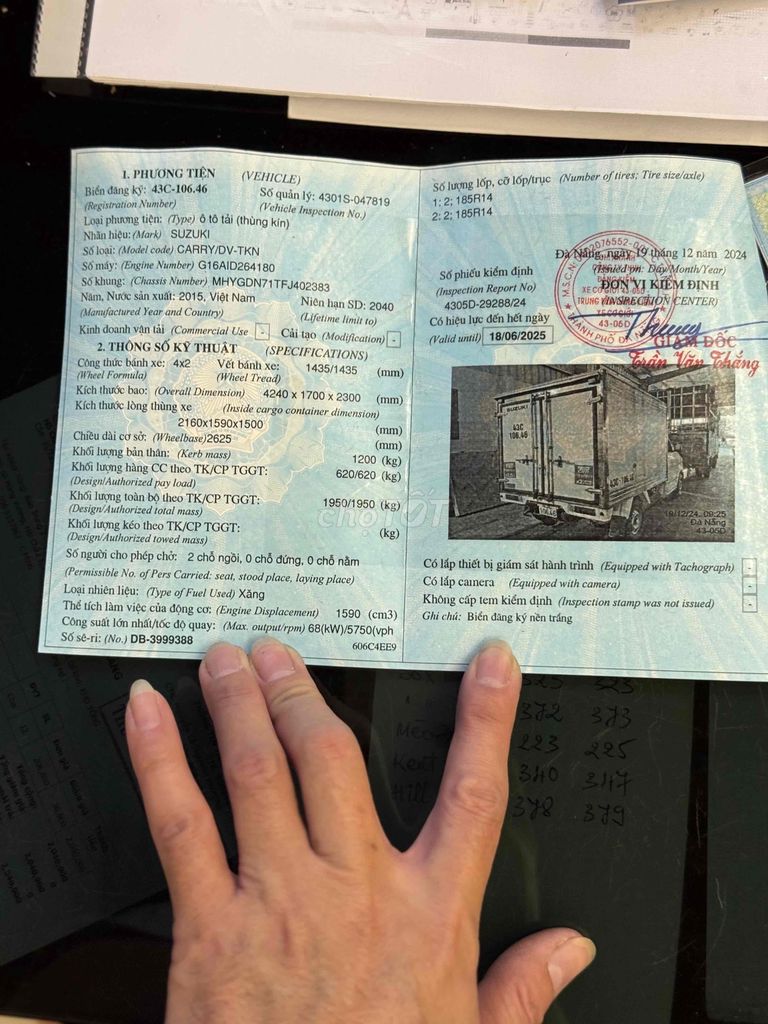 1. PHƯƠNG TIỆN (VEHICLE)
Biển đăng ký: 43C-106.46 Số quản lý: 4301S-047819
(Registration Number) (Vehicle Inspection No.)
Loại phương tiện: (Type) ô tô tải (thùng kín)
Nhãn hiệu: (Mark) SUZUKI
Số loại: (Model code) CARRY/DV-TKN
Số máy: (Engine Number) G16AID264180
Số khung: (Chassis Number) MHYGDN71TFJ402383
Năm, Nước sản xuất: 2015, Việt Nam Niên hạn SD: 2040
(Manufactured Year and Country) (Lifetime limit to)
Kinh doanh vận tải (Commercial Use - Cải tạo (Modification) -
2. THÔNG SỐ KỸ THUẬT (SPECIFICATIONS)
Công thức bánh xe: 4x2 Vết bánh xe: 1435/1435 (mm)
(Wheel Formula) (Wheel Tread)
Kích thước bao: (Overall Dimension) 4240 x 1700 x 2300 (mm)
Kích thước lòng thùng xe (Inside cargo container dimension)
2160x1590x1500 (mm)
Chiều dài cơ sở: (Wheelbase)2625 (mm)
Khối lượng bản thân: (Kerb mass) 1200 (kg)
Khối lượng hàng CC theo TK/CP TGGT: 620/620 (kg)
(Design/Authorized pay load)
Khối lượng toàn bộ theo TK/CP TGGT: 1950/1950 (kg)
(Design/Authorized total mass)
Khối lượng kéo theo TK/CP TGGT: (kg)
(Design/Authorized towed mass)
Số người cho phép chở: 2 chỗ ngồi, 0 chỗ đứng, 0 chỗ nằm
(Permissible No. of Pers Carried: seat, stood place, laying place)
Loại nhiên liệu: (Type of Fuel Used) Xăng
Thể tích làm việc của động cơ: (Engine Displacement) 1590 (cm3)
Công suất lớn nhất/tốc độ quay: (Max. output/rpm) 68(kW)/5750(vph
Số sê-ri: (No.) DB-3999388 606C4EE9
Số lượng lốp, cỡ lốp/trục (Number of tires; Tire size/axle)
1: 2; 185R14
2: 2; 185R14
Đà Nẵng, ngày 19 tháng 12 năm 2024
(Issued on: Day/Month/Year)
Số phiếu kiểm định ĐƠN VỊ KIỂM ĐỊNH
(Inspection Report No) (INSPECTION CENTER)
4305D-29288/24
Có hiệu lực đến hết ngày
(Valid until) 18/06/2025
GIÁM ĐỐC
Trần Văn Thắng
43-05D
SUZUKI
43C
106.46
43C-106.46
19/12/24 09:25
Đà Nẵng
43-05D
chợTỐT
Có lắp thiết bị giám sát hành trình (Equipped with Tachograph) -
Có lắp camera (Equipped with camera) -
Không cấp tem kiểm định (Inspection stamp was not issued) -
Ghi chú: Biển đăng ký nền trắng
372 373
223 225
340 347
378 379